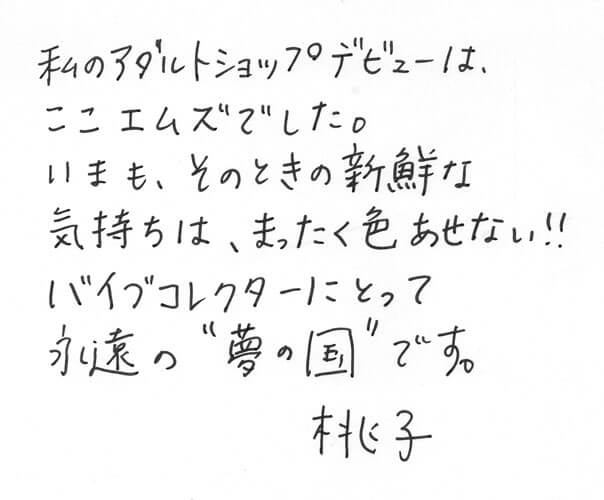 私のアダルトショップデビューは、
ここエムズでした。
いまも、そのときの新鮮な
気持ちは、まったく色あせない!!
バイブコレクターにとって
永遠の“夢の国”です。
桃子